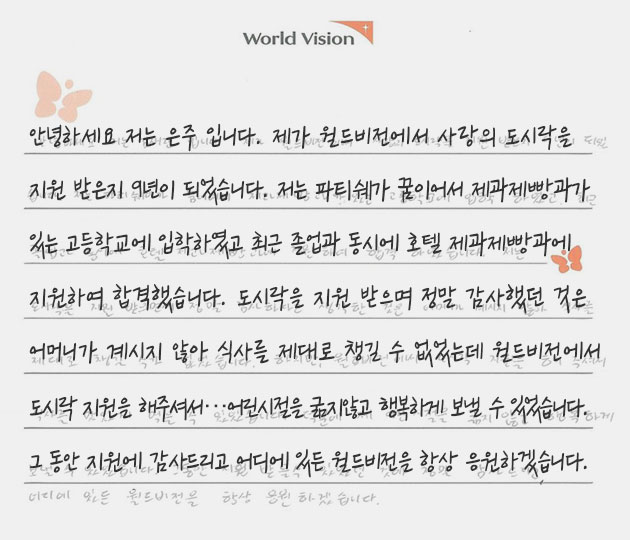 World Vision
안녕하세요 저는 은주 입니다. 제가 월드비전에서 사랑의 도시락을
지원 받은지 9년이 되었습니다. 저는 파티쉐가 꿈이어서 제과제빵과가
있는 고등학교에 입학하였고 최근 졸업과 동시에 호텔 제과제빵과에
지원하여 합격했습니다. 도시락을 지원 받으며 정말 감사했던 것은
어머니가 계시지 않아 식사를 제대로 챙길 수 없었는데 월드비전에서
도시락 지원을 해주셔서···어린시절을 굶지않고 행복하게 보낼 수 있었습니다.
그 동안 지원에 감사드리고 어디에 있든 월드비전을 항상 응원하겠습니다.
어디에 있든 월드비전을 항상 응원하겠습니다.